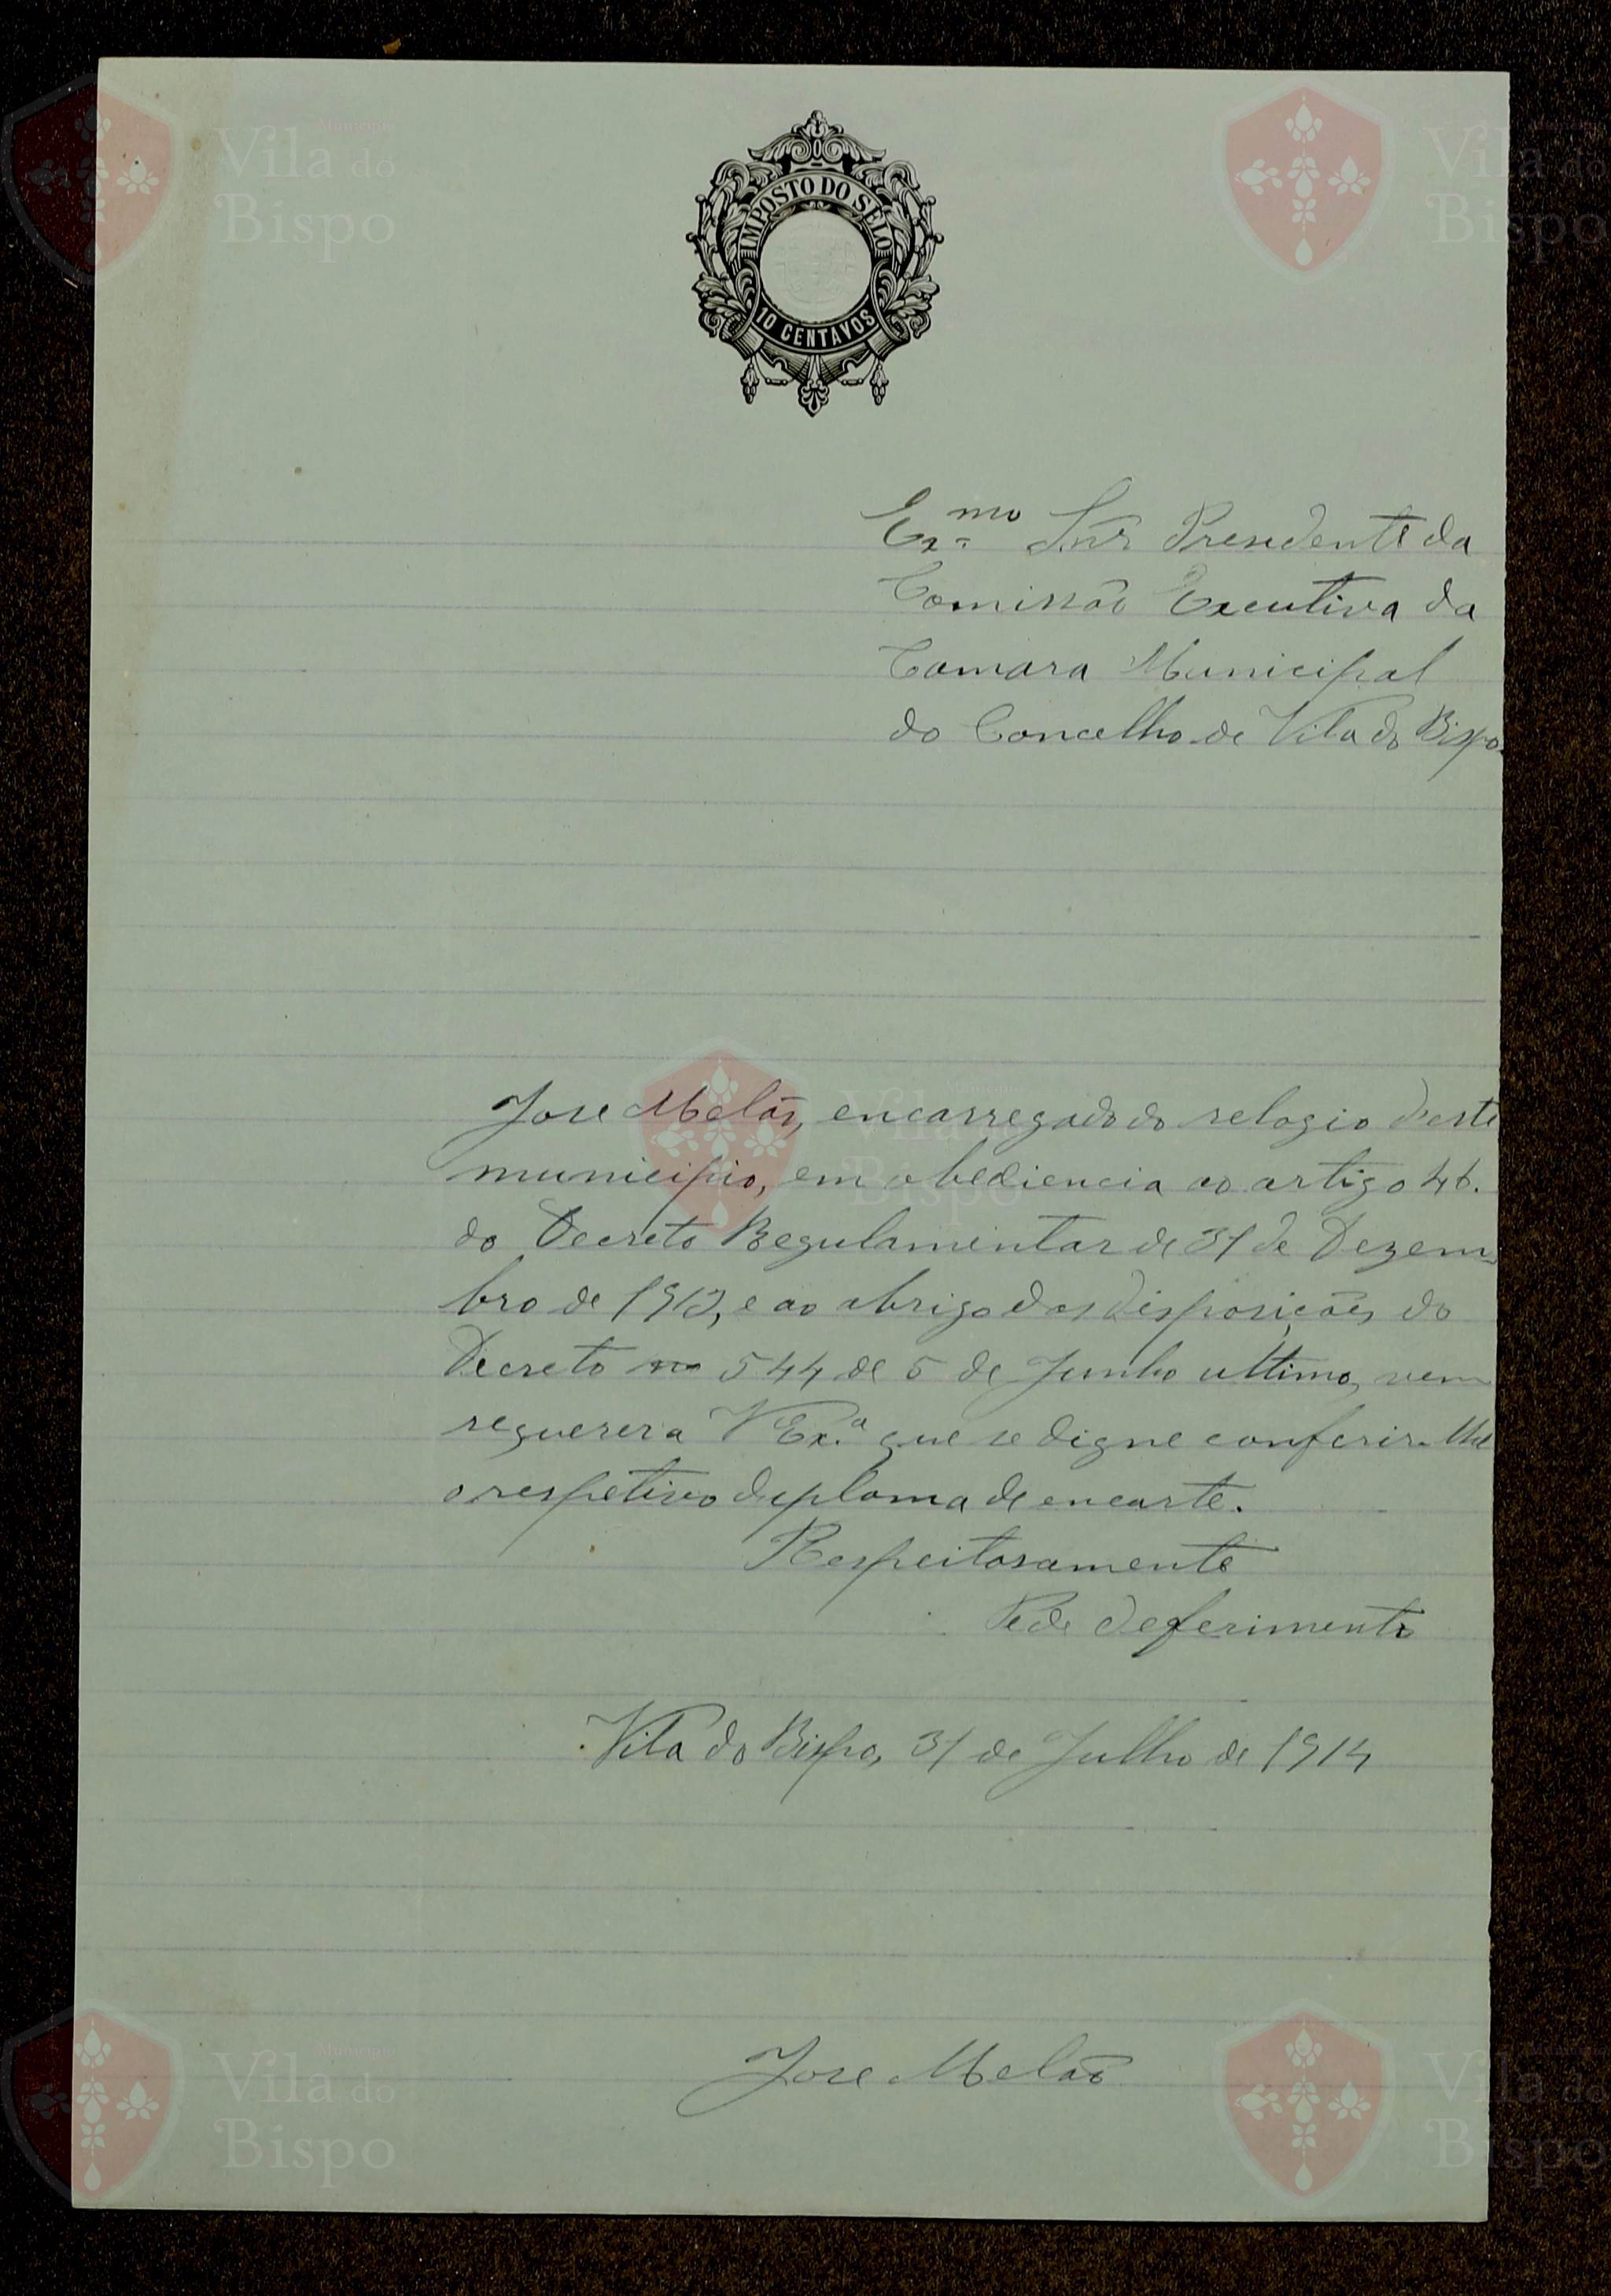 Município
Vila do
Bispo
Vila do
Bispo
IMPOSTO DO SELO
10 CENTAVOS
Exmo Snr Presidente da
Comissão Executiva da
Camara Municipal
do Concelho de Vila do Bispo.
Município
Vila do
Bispo
Jose Melão, encarregado do relogio d'este
municipio, em obediencia ao artigo 46.
do Decreto Regulamentar de 31 de Dezem
bro de 1913, e ao abrigo das disposições do
Decreto no 544 de 5 de Junho ultimo, vem
requerer a V Ex.a que se digne conferir-lhe
o respetivo diploma de encarte.
Respeitosamente
Pede deferimento
Vila do Bispo, 31 de Julho de 1914
Jose Melão
Município
Vila do
Bispo
Vila do
Bispo